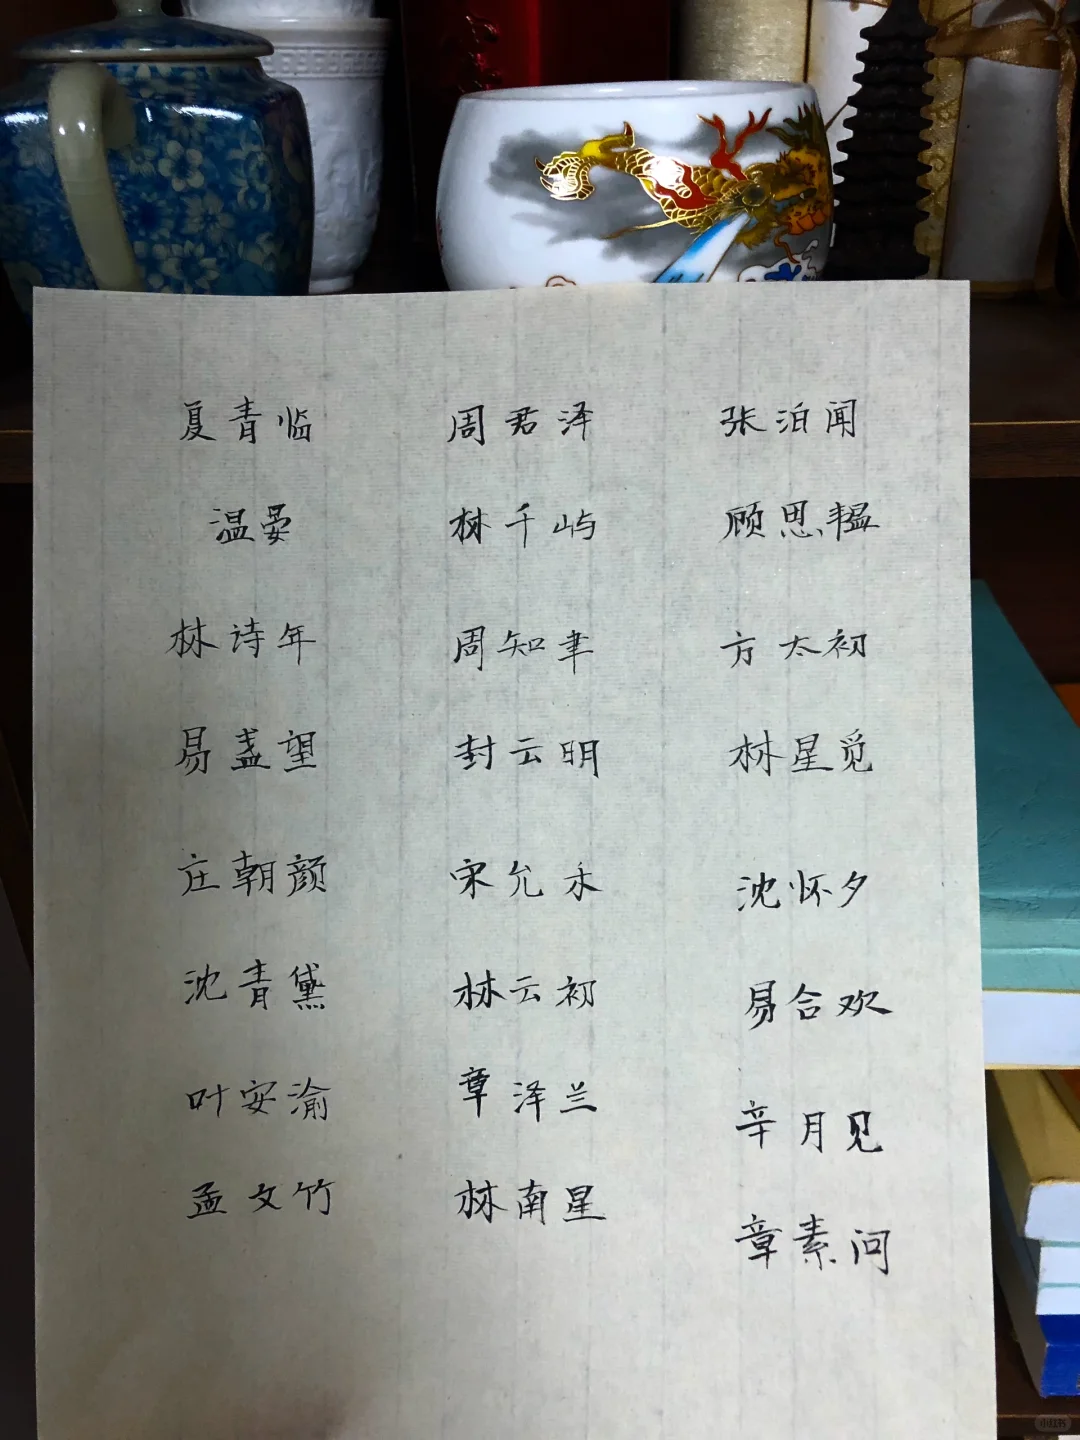 夏青临 周君泽 张泊闻
温晏 林千屿 顾思韫
林诗年 周知聿 方太初
易盏望 封云明 林星觅
庄朝颜 宋允禾 沈怀夕
沈青黛 林云初 易合欢
叶安渝 章泽兰 辛月见
孟文竹 林南星 章素问
小红书